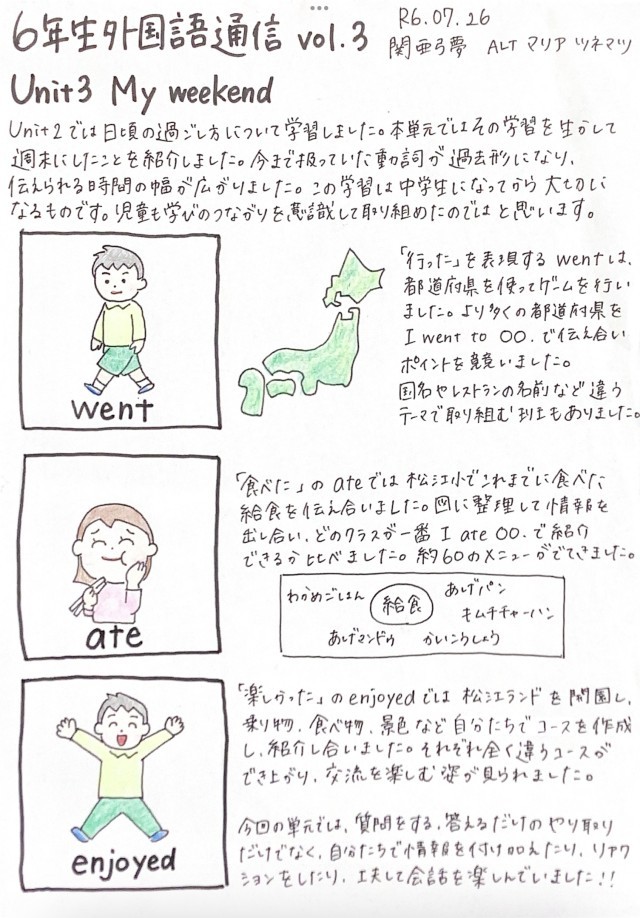 6年生外国語通信 vol.3
R6.07.26
関亜弓夢 ALT マリア ツネマツ
Unit3 My weekend
Unit2では日頃の過ごし方について学習しました。本単元ではその学習を生かして
週末にしたことを紹介しました。今まで扱っていた動詞が過去形になり、
伝えられる時間の幅が広がりました。この学習は中学生になってから大切に
なるものです。児童も学びのつながりを意識して取り組めたのではと思います。
went
「行った」を表現するwentは、
都道府県を使ってゲームを行い
ました。より多くの都道府県を
I went to ○○. で伝え合い
ポイントを競いました。
国名やレストランの名前など違う
テーマで取り組む班もありました。
ate
「食べた」のateでは松江小でこれまでに食べた
給食を伝え合いました。図に整理して情報を
出し合い、どのクラスが一番 I ate ○○. で紹介
できるか比べました。約60のメニューがでてきました。
わかめごはん 給食 あげパン
キムチチャーハン
あげマンドゥ かいこうしょう
enjoyed
「楽しかった」のenjoyedでは松江ランドを開園し、
乗り物、食べ物、景色など自分たちでコースを作成
し、紹介し合いました。それぞれ全く違うコースが
でき上がり、交流を楽しむ姿が見られました。
今回の単元では、質問をする、答えるだけのやり取り
だけでなく、自分たちで情報を付け加えたり、リアク
ションをしたり、工夫して会話を楽しんでいました!!